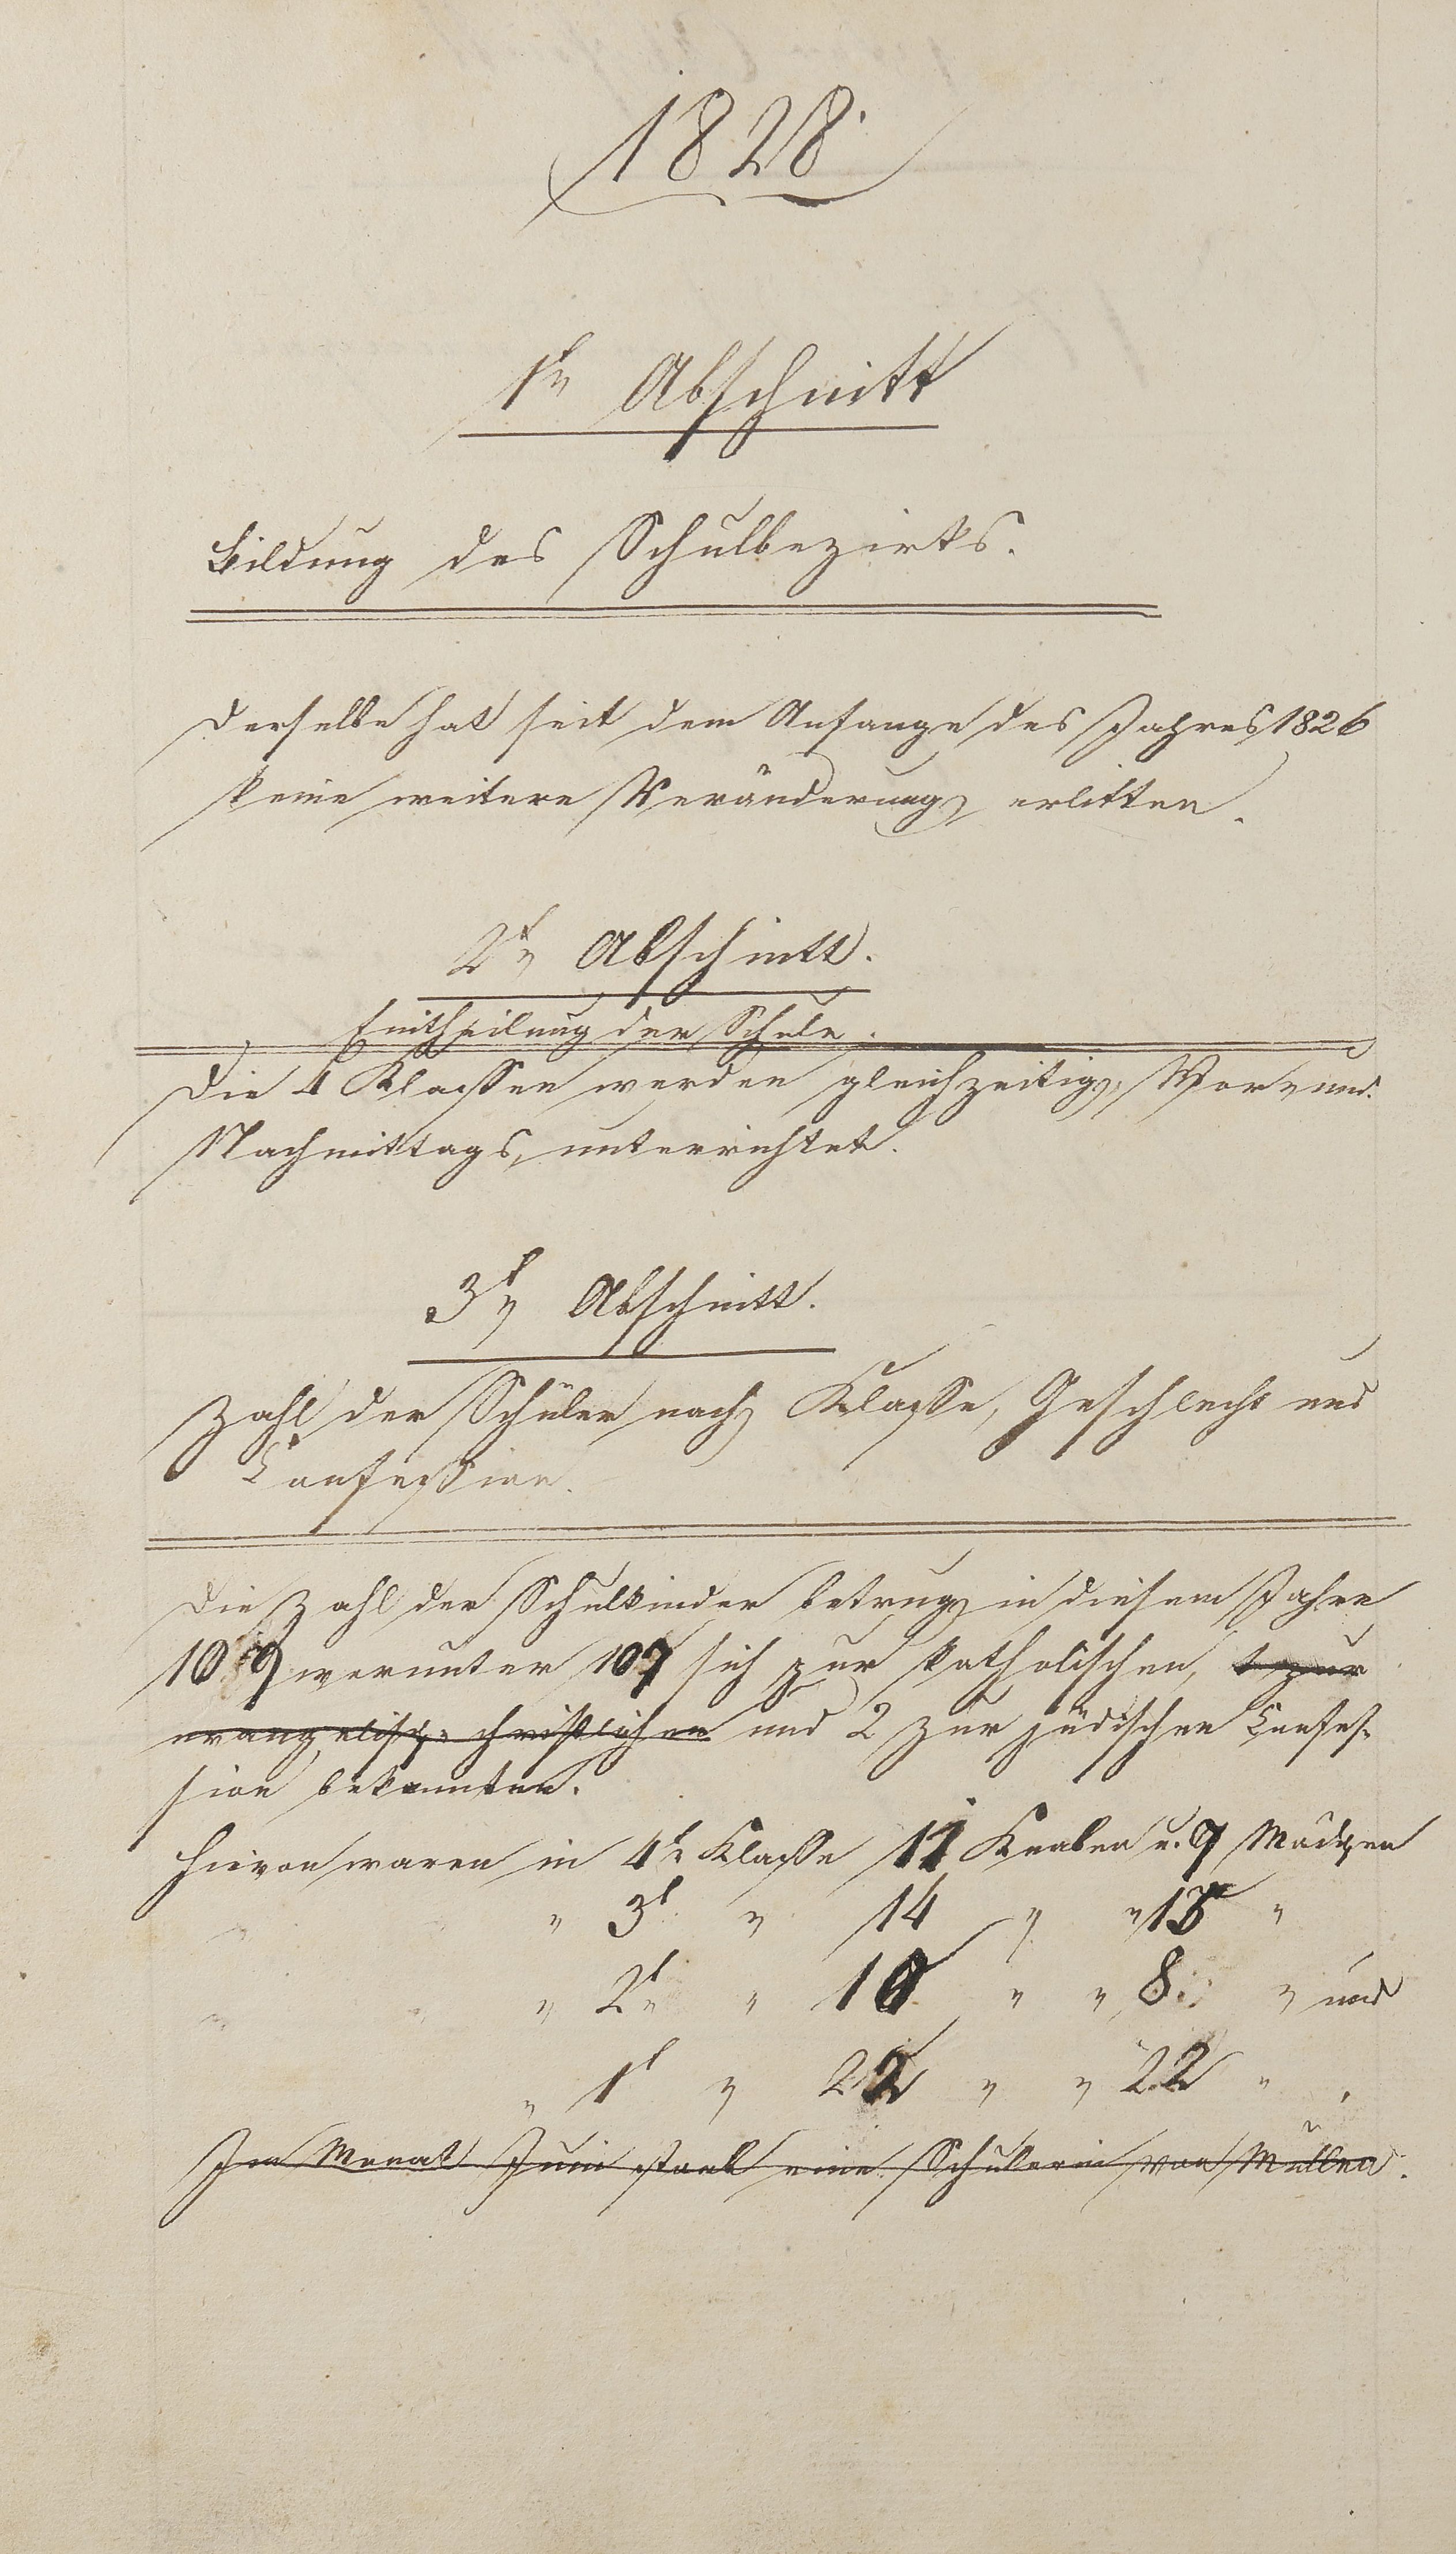 1828.
1r Abschnitt
Bildung des Schulbezirks.
Derselbe hat seit dem Anfange des Jahres 1826
keine weitere Veränderung erlitten.
2r Abschnitt.
Eintheilung der Schule.
Die 4 Klassen werden gleichzeitig, Vor- und
Nachmittags, unterrichtet.
3r Abschnitt.
Zahl der Schüler nach Klasse, Geschlecht und
Confession.
Die Zahl der Schulkinder betrug in diesem Jahre
109 worunter 107 sich zur katholischen, 1 zur
evangelisch-christlichen und 2 zur jüdischen Confes-
sion bekannten.
Hievon waren in 4r Klasse 11 Knaben u. 9 Mädchen
" 3r " 14 " " 13 "
" 2r " 10 " " 8 " und
" 1r " 22 " " 22 " .
Im Monat Juni starb eine Schülerin von Müllen.